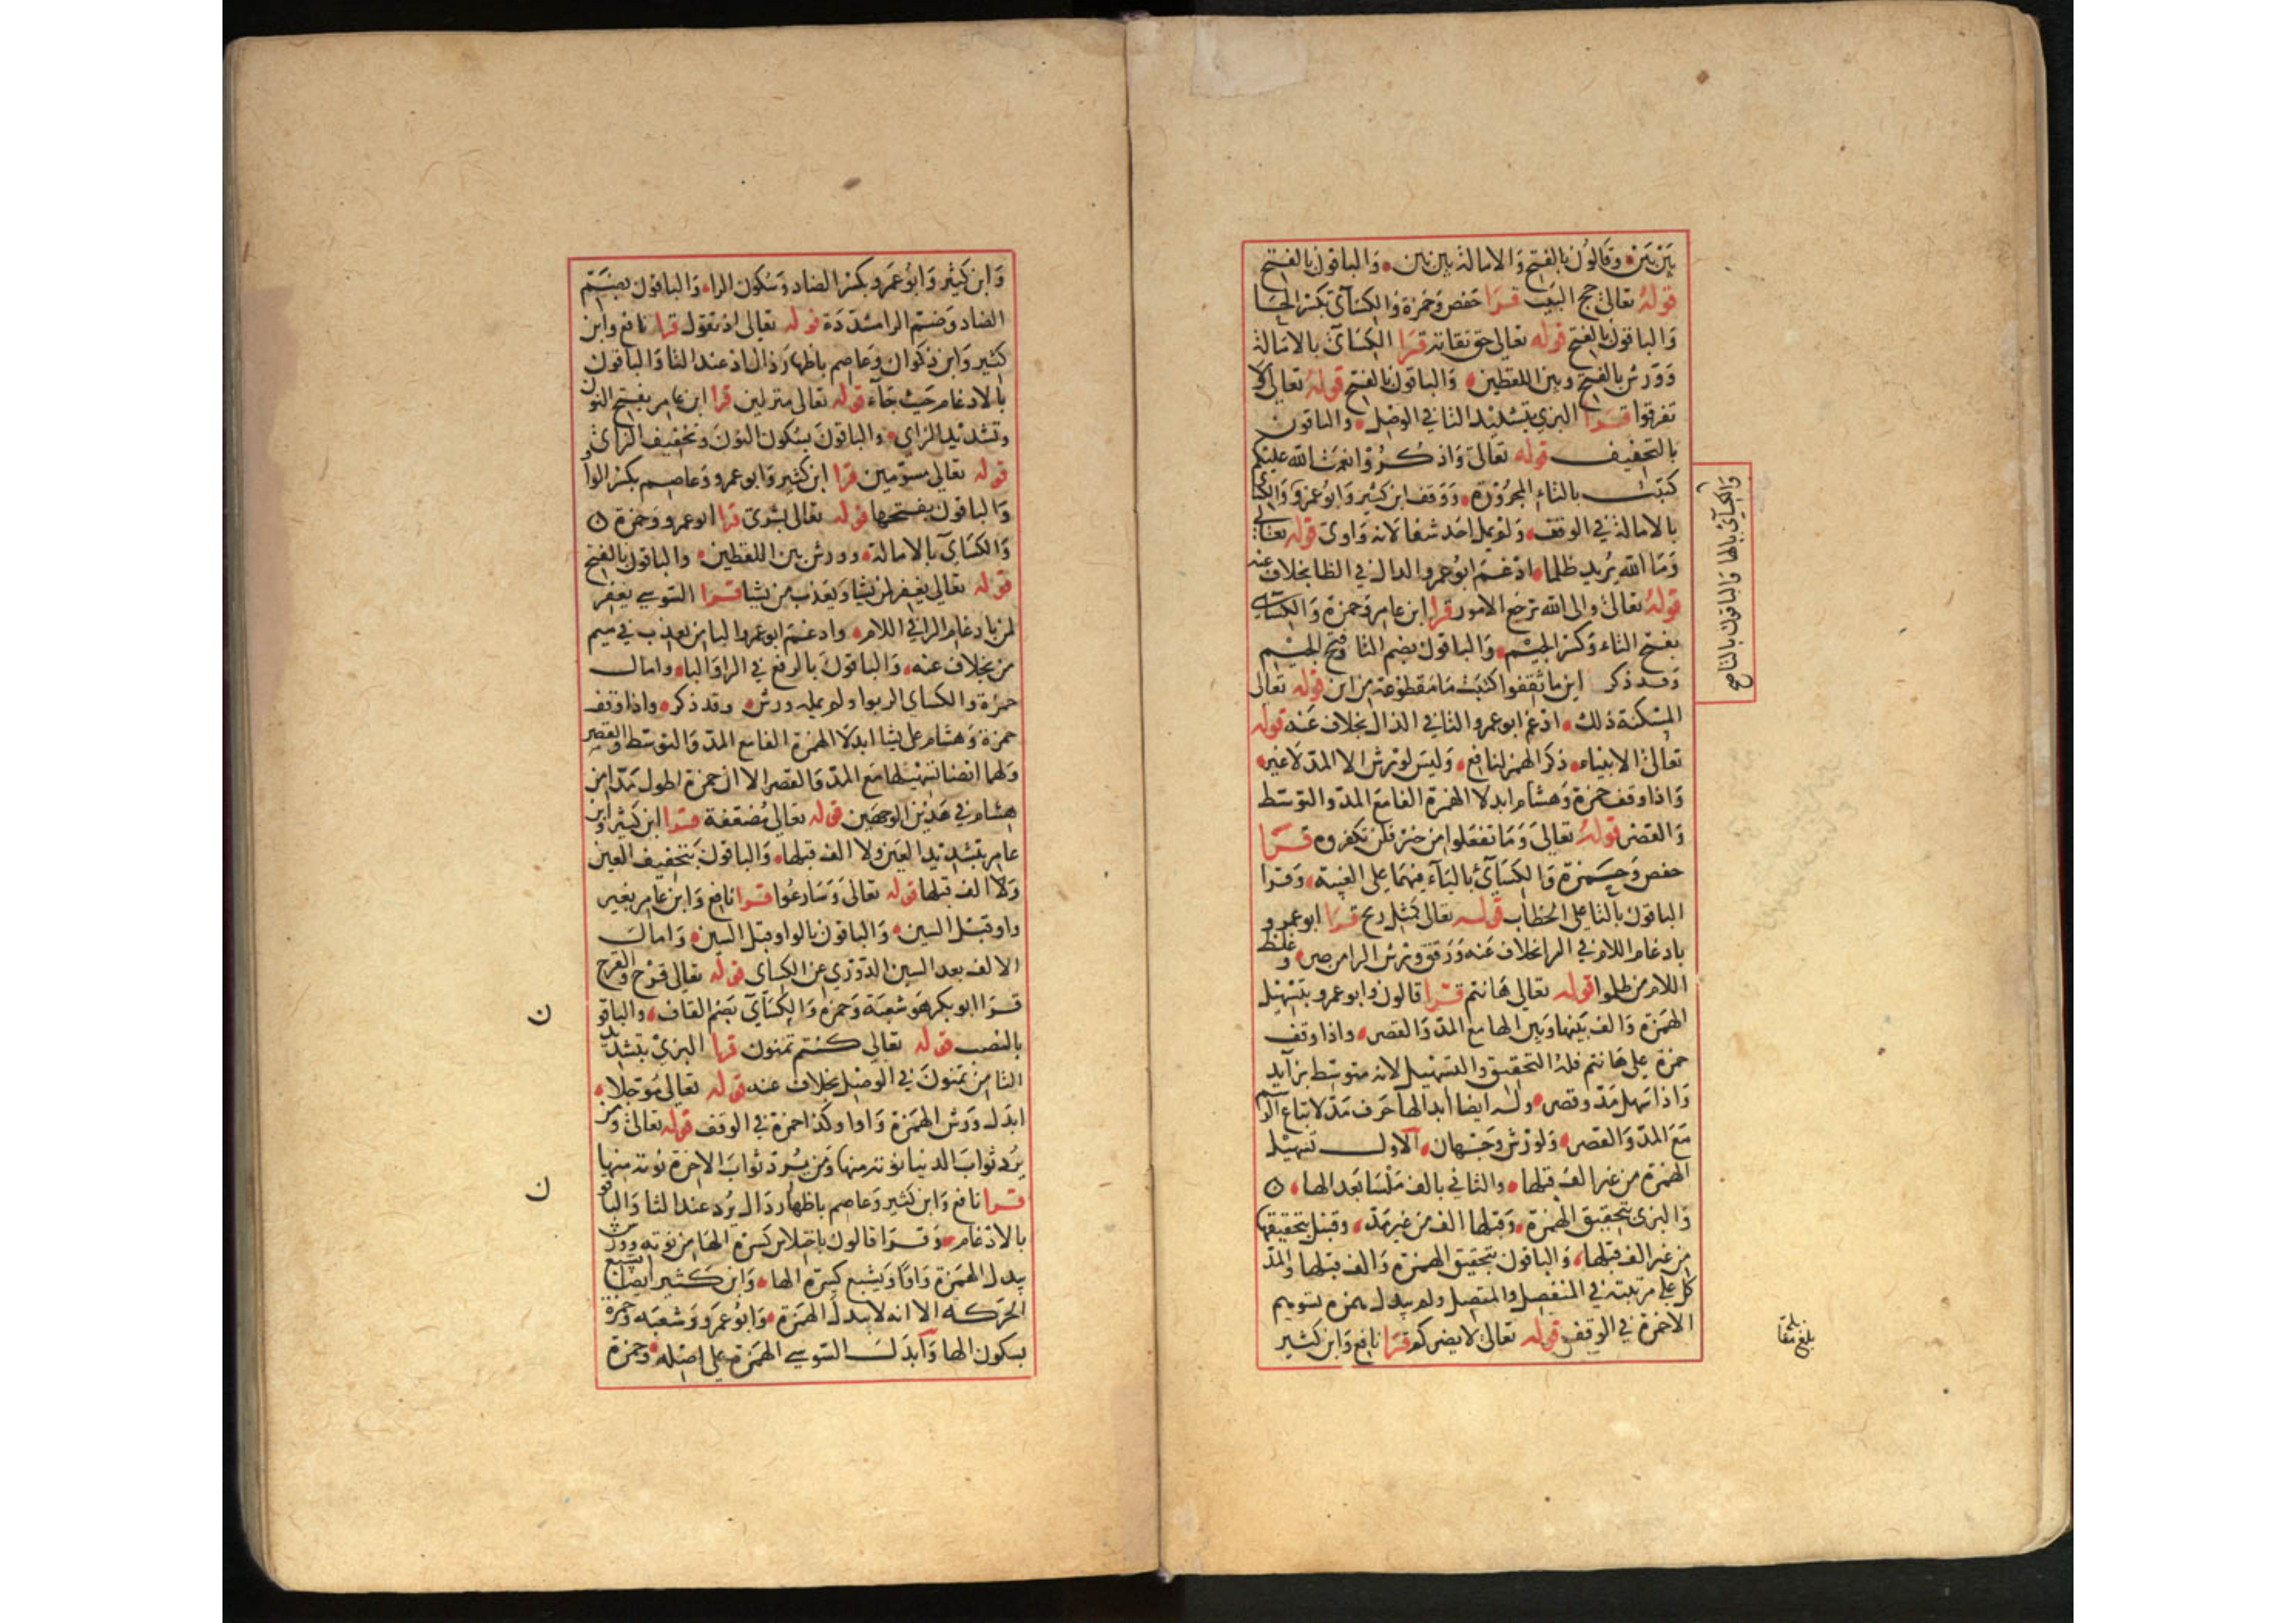 بين بين وقالون بالفتح والامالة بين بين والباقون بالفتح
قوله تعالى حج البيت قرا حفص وحمزة والكسآى بكسر الحا
والباقون بالفتح قوله تعالى حق تقاته قرا الكسآى بالامالة
وورش بالفتح وبين اللفظين والباقون بالفتح قوله تعالى ولا
تفرقوا قرا البزي بتشديد التا في الوصل والباقون
بالتخفيف قوله تعالى واذكروا نعمت الله عليكم
كتبت بالتاء المجرورة ووقف ابن كثير وابو عمرو والكسآى
بالامالة في الوقف ولم يمل احد شفا لانه واوى قوله تعالى
وما الله يريد ظلما ادغم ابو عمرو الدال في الظا بخلاف عنه
قوله تعالى والى الله ترجع الامور قرا ابن عامر وحمزة والكسآى
بفتح التاء وكسر الجيم والباقون بضم التا وفتح الجيم
وقد ذكر اين ما ثقفوا كتبت ما مقطوعة من اين قوله تعالى
المسكنة ذلك ادغم ابو عمرو التا في الذال بخلاف عنه قوله
تعالى الانبياء ذكر الهمز لنافع وليس لورش الا المد لا غير
واذا وقف حمزة وهشام ابدلا الهمزة الفا مع المد والتوسط
والقصر قوله تعالى وما تفعلوا من خير فلن تكفروه قرا
حفص وحمزة والكسآئ باليآء فيهما على الغيبة وقرا
الباقون بالتا على الخطاب قوله تعالى كمثل ريح قرا ابو عمرو
بادغام اللام في الرا بخلاف عنه ورقق ورش الرا من صر وغلظ
اللام من ظلموا قوله تعالى هانتم قرا قالون وابو عمرو بتسهيل
الهمزة والف بينها وبين الها مع المد والقصر واذا وقف
حمزة على هانتم فله التحقيق والتسهيل لانه متوسط بزآيد
واذا سهل مد وقصر وله ايضا ابدالها حرف مد لاتباع الرسم
مع المد والقصر ولورش وجهان الاول تسهيل
الهمزة من غير الف قبلها والثاني بالف ملسا بعد الها
والبزى بتحقيق الهمزة وقبلها الف من غير مد وقنبل بتحقيقها
من غير الف قبلها والباقون بتحقيق الهمزة والف قبلها والمد
كل على مرتبته في المنفصل والمتصل ولم يبدل همزة تسوهم
الا حمزة في الوقف قوله تعالى لا يضركم قرا نافع وابن كثير
والكسآئ بالها والباقون بالتا صح
بلغ مقابلة
وابن كثير وابو عمرو بكسر الضاد وسكون الرا والباقون بضم
الضاد وضم الرا مشددة قوله تعالى اذ تقول قرا نافع وابن
كثير وابن ذكوان وعاصم باظهار ذال اذ عند التا والباقون
بالادغام حيث جآء قوله تعالى منزلين قرا ابن عامر بفتح النون
وتشديد الزاى والباقون بسكون النون وتخفيف الزاى
قوله تعالى مسومين قرا ابن كثير وابو عمرو وعاصم بكسر الواو
والباقون بفتحها قوله تعالى بشرى قرا ابو عمرو وحمزة
والكسآى بالامالة وورش بين اللفظين والباقون بالفتح
قوله تعالى يغفر لمن يشا ويعذب من يشا قرا السوسي يغفر
لمن بادغام الرا في اللام وادغم ابو عمرو البا من يعذب في ميم
من بخلاف عنه والباقون بالرفع في الرا والبا وامال
حمزة والكساى الربوا ولم يمله ورش وقد ذكر واذا وقف
حمزة وهشام على يشا ابدلا الهمزة الفا مع المد والتوسط والقصر
ولهما ايضا تسهيلها مع المد والقصر الا ان حمزة اطول مدا من
هشام في هذين الوجهين قوله تعالى مضعفة قرا ابن كثير وابن
عامر بتشديد العين ولا الف قبلها والباقون بتخفيف العين
ولا الف قبلها قوله تعالى وسارعوا قرا نافع وابن عامر بغير
واو قبل السين والباقون بالواو قبل السين وامال
الالف بعد السين الدوري عن الكساى قوله تعالى قرح والقرح
قرا ابو بكر هو شعبة وحمزة والكسآى بضم القاف والباقو
بالنصب قوله تعالى كنتم تمنون قرا البزي بتشديد
التا من تمنون في الوصل بخلاف عنه قوله تعالى مؤجلا
ابدل ورش الهمزة واوا وكذا حمزة في الوقف قوله تعالى ومن
يرد ثواب الدنيا نؤته منها ومن يرد ثواب الاخرة نؤته منها
قرا نافع وابن كثير وعاصم باظهار دال يرد عند الثا والباقو
بالادغام وقرا قالون باختلاس كسرة الها من نوته وورش
يبدل الهمزة واوا ويشبع كسرة الها وابن كثير ايضا يشبع
الحركه الا انه لا يبدل الهمزة وابو عمرو وشعبه وحمزة
بسكون الها وابدل السوسي الهمزة على اصله وحمزة
ن
ن